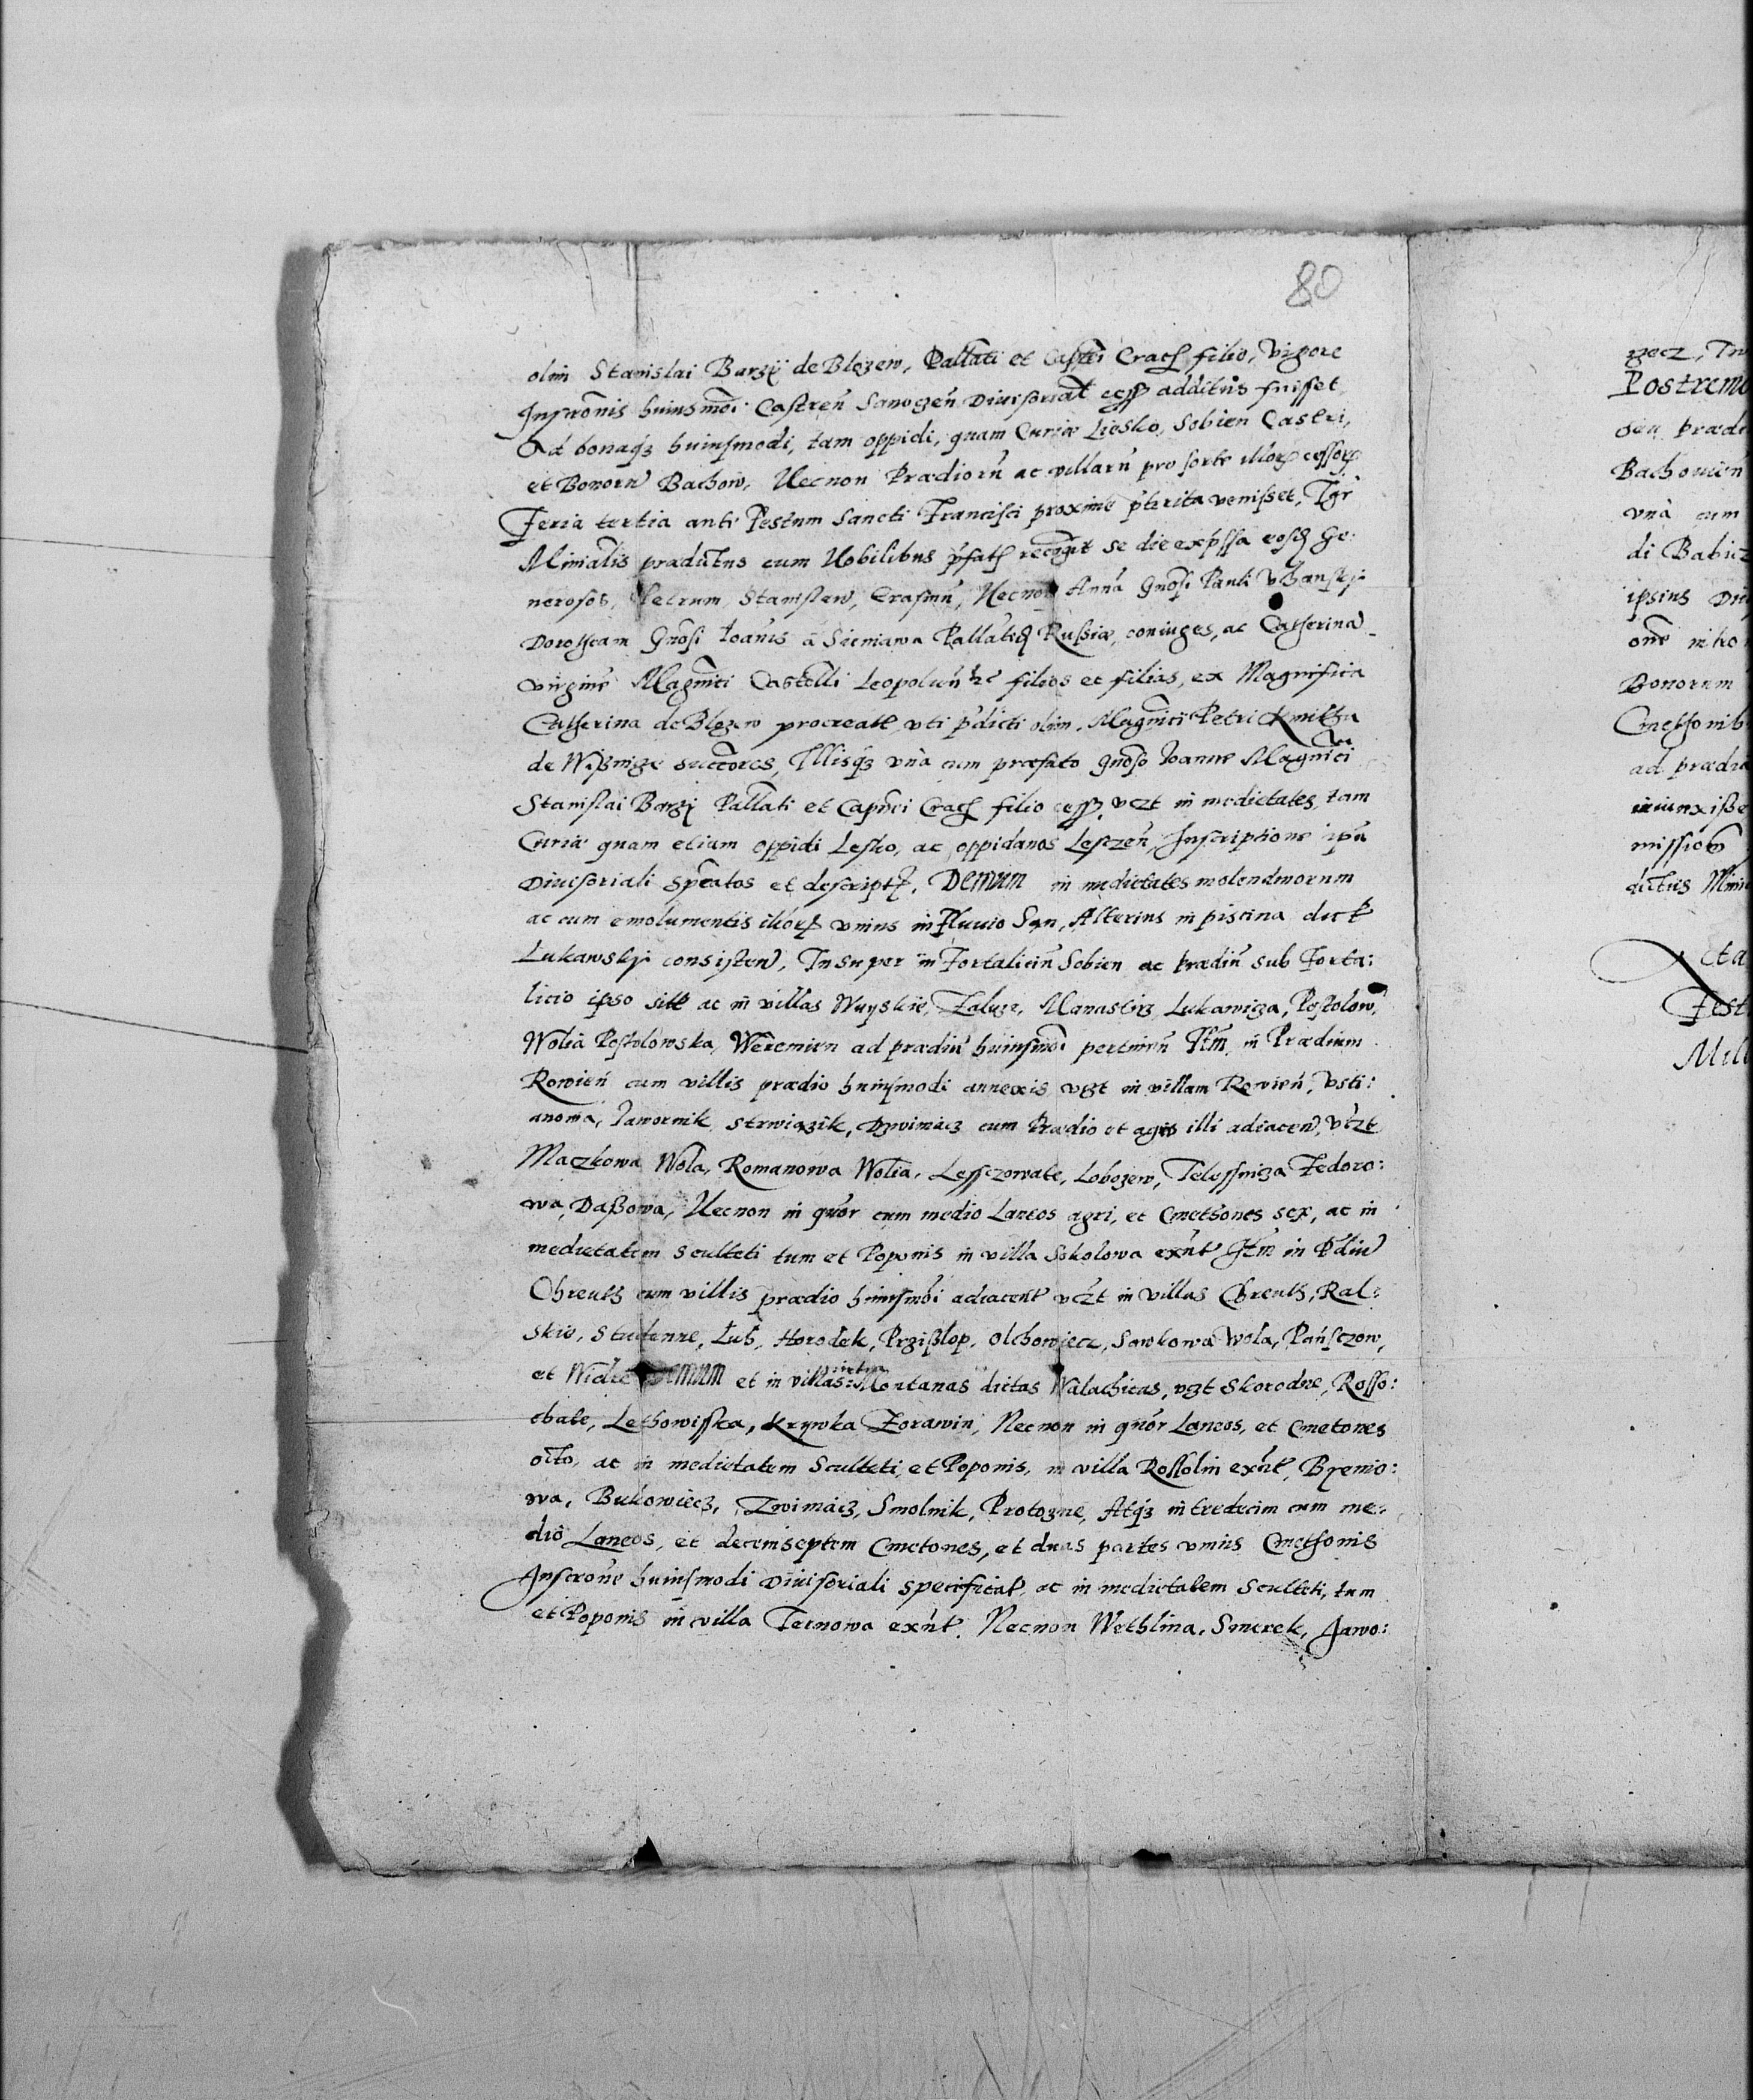 80
olim Stanislai Barzÿ de Blozew, Pallati et Capnei Crach filio, Vigore
Inscrōnis huiusmōi Castreñ Sanogeñ Diuisorial cess additus fuisset,
Ad bonaqз huiusmodi, tam oppidi, quam Curiæ Liesko, Sobien Castri,
et Bonorũ Bachow, Necnon Prædiorũ ac villarũ pro sorte illorꝫ cessorꝫ
Feria tertia ante Festum Sancti Francisci proxime pterita venisset, Igr
Minialis pradictus cum Nobilibus pfatꝫ recogt se die expssa eosꝫ Ge:
nerosos, Petrum, Stanislaw, Erasmũ, Necnon Annã Gnosi Pauli Vhanskj:
Dorotheam Gnosi Ioanis a Sieniawa Pallatiꝫ Russiæ, coniuges, ac Catherinã
virginẽ Magnici Castelli Leopolien filios et filias, ex Magnifica
Catherina de Blozew procreat, vti pdicti olim Magnici Petri Kmitha
de Wißnize succores, Illisqз vnà cum præfato Gnoso Ioanne Magnici
Stanislai Barzj Pallati et Capnei Crach filio cess, vczt in medietates, tam
Curiæ quam etiam oppidi Lesko, ac oppidanos Lesczeñ, Inscriptione ipa
Diuisoriali spcatos et descriptꝫ, Demum in medietates molendinorum
ac cum emolumentis illorꝫ vnius in Fluuio San, Alterius in piscina dict
Lukawskj consisteñ, Insuper in Fortaliciũ Sobien ac prædiũ sub Forta:
licio ipso sitt ac in villas Wuyskie, Zaluze, Manastirz, Lukawicza, Postolow,
Wolia Postolowska, Weremien ad prædiũ huiusmōi pertineñ Itm, in Prædium
Rowień cum villis prædio huiusmodi annexis vczt in villam Rowień, Vsti:
anowa, Jawornik, Strwiązik, Dzwiniacz cum Prædio et agris illi adiaceñ, vczt
Maczkowa Wola, Romanowa Wolia, Lessczowate, Lobozew, Telessnicza Fedoro:
wa, Daßowa, Necnon in quor cum medio Laneos agri, et Cmethones sex, ac in
medietatem sculteti tum et Poponis in villa Sokolowa exñt Itm in Pdiũ
Chreuth cum villis prædio huiusmōi adiacent vczt in villas Chreuth, Ral:
skie, Studenne, Luh, Horodek, Przißlop, Olchowiecz, Sawkowa Wola, Pańsczow,
et Demum et in villas: Montanas dictas Walachicas, vczt Skorodne, Rosso:
chate, Lethowisska, Krywka Zorawin, Necnon in quor Laneos, et Cmetones
octo, ac in medietatem Sculteti, et Poponis, in villa Rossolin exñt, Bzenio:
wa, Bukowiecz, Zwiniacz, Smolnik, Protozne, Atqз in tredecim cum me:
dio Laneos, et decemseptem Cmetones, et duas partes vnius Cmethonis
Inscrone huiusmodi Diuisoriali specificat, ac in medietatem Sculteti, tum
et Poponis in villa Ternowa exñt. Necnon Wethlina, Smerek, Jawo:
Postremo
Bachouien
vnà cum
di Babicz
ipsius
Bonorum
Cmethonib
ad prædia
iniunxiße
missiom
dictus Mini
Acta
Fest
Mill